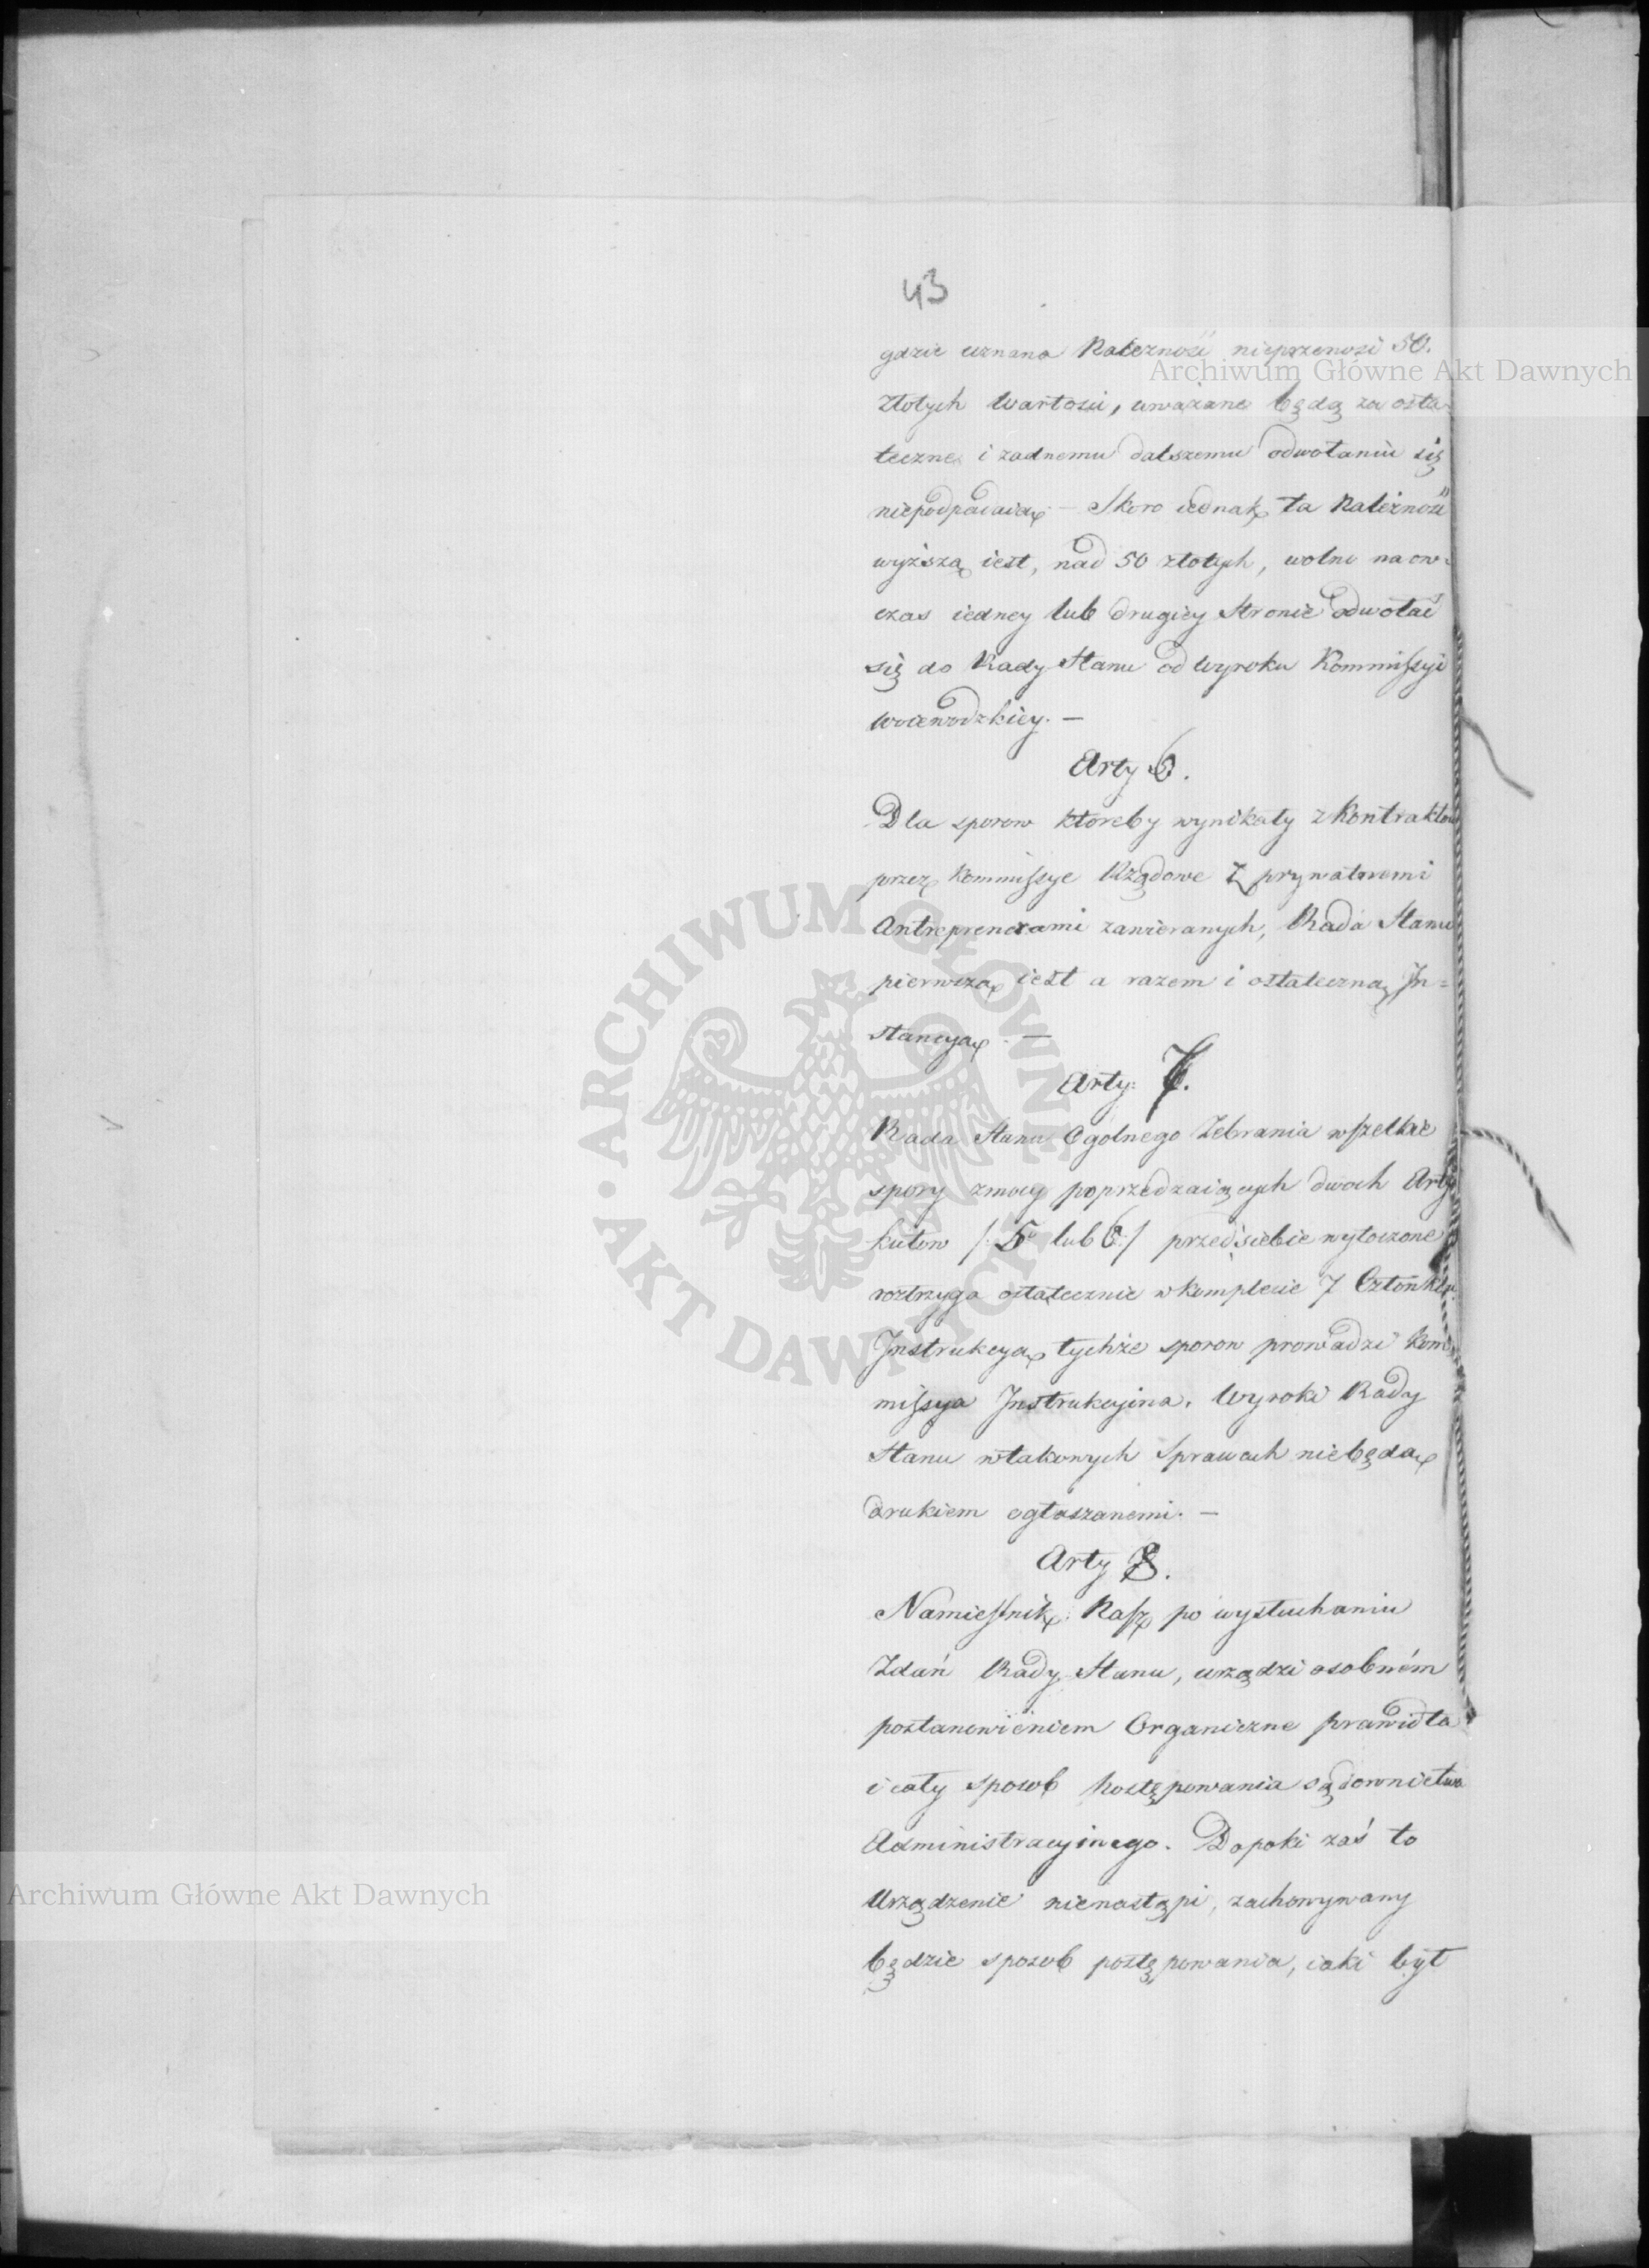 43
gdzie uznana Należność nieprzenosi 50.
Złotych Wartości, uważane będą za osta-
teczne i żadnemu dalszemu odwołaniu się
niepodpadaią. — Skoro iednak ta Należność
wyższą iest, nad 50 złotych, wolno naow-
czas iedney lub drugiey Stronie odwołać
się do Rady Stanu od Wyroku Kommissyi
Woiewodzkiey. —
Arty 6.
Dla sporow ktoreby wynikały z Kontraktow
przez Kommissye Rządowe Z prywatnemi
Antreprenerami zawieranych, Rada Stanu
pierwszą iest a razem i ostateczną In=
stancyą. —
Arty: 7.
Rada Stanu Ogolnego Zebrania wszelkie
spory zmocy poprzedzaiących dwoch Arty
kułow /:5 lub 6:/ przed siebie wytoczone
roztrzyga ostatecznie w komplecie 7 Członków.
Instrukcyą tychże sporow prowadzi Kom
missya Instrukcyina. Wyroki Rady
Stanu wtakowych Sprawach niebędą
drukiem ogłaszanemi. —
Arty 8.
Namiestnik Nasz po wysłuchaniu
Zdań Rady Stanu, urządzi osobném
postanowieniem Organiczne prawidła
i cały sposob Postępowania sądownictwa
Administracyinego. Dopoki zaś to
Urządzenie nienastąpi, zachowywany
będzie sposob postępowania, iaki był
Archiwum Główne Akt Dawnych
Archiwum Główne Akt Dawnych
ARCHIWUM GŁÓWNE AKT DAWNYCH